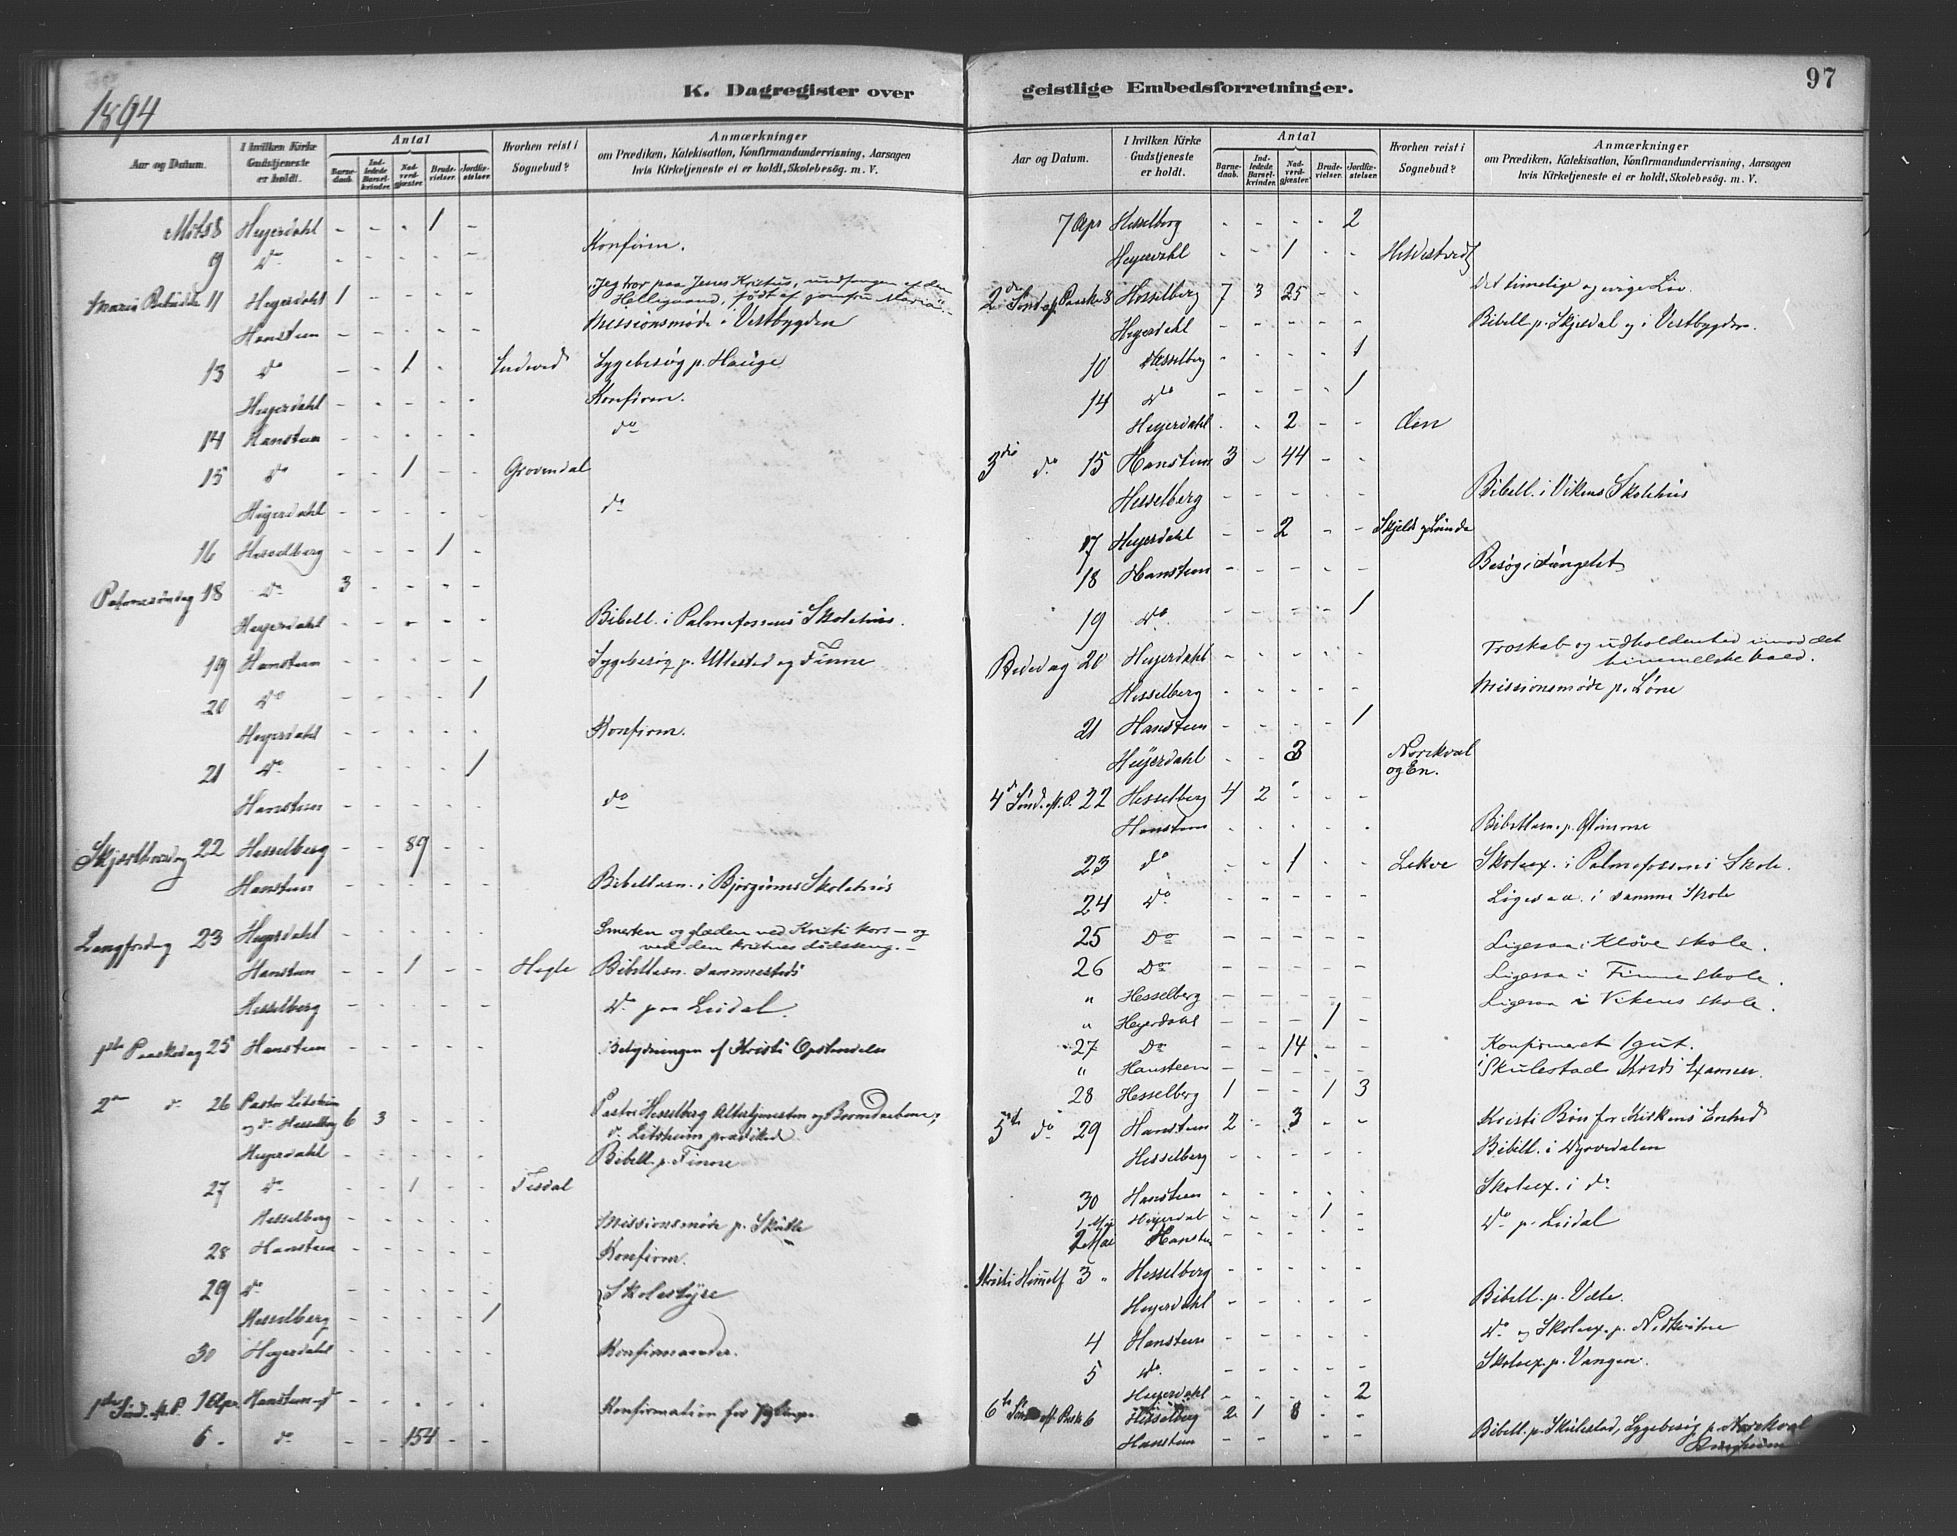 1894
K. Dagregister over
Aar og Datum. I hvilken Kirke Gudstjeneste er holdt. Antal Barnedaab. Indledede Barselkvinder. Nadverdgjæster. Brudevielser. Jordfæstelser. Hvorhen reist i Sognebud? Anmærkninger om Prædiken, Katekisation, Konfirmandundervisning, Aarsagen hvis Kirketjeneste ei er holdt, Skolebesøg. m. V.
8 Heyerdahl - - - 1 -
9 do - - - - - Konfirm.
Mariæ 11 Heyerdahl 1 - - - - Jeg tror paa Jesus Kristus, undfangen af den
Helligaand, født af jomfru Maria.
Hansteen - - - - - Missionsmøde i Vestbygden
13 do - - 1 - Sygebesøg p. Hauge
Heyerdahl - - - - - Konfirm.
14 Hansteen - - - - - do
15 do - - 1 - - Grovendal
Heyerdahl - - - - - do
16 Hesselberg - - - 1 -
Palmesøndag 18 do 3 - - - -
Heyerdahl - - - - - Bibell. i Palmefossens Skolehus.
19 Hansteen - - - - - Sygebesøg p. Ullestad og Finne
20 do - - - - 1
Heyerdahl - - - - - Konfirm.
21 do - - - - 1
Hansteen - - - - - do
Skjærthorsdag 22 Hesselberg - - 89 - -
Hansteen - - - - - Bibellæsn. i Bjørgums Skolehus
Langfredag 23 Heyerdahl - - - - - Smerten og glæden ved Kristi kors - og
ved den kristnes dødsseng. -
Hansteen - - 1 - - Hegle Bibellæsn. sammesteds
Hesselberg - - - - - do paa Leidal.
1ste Paaskedag 25 Hansteen - - - - - Betydningen af Kristi Opstandelse
2den d. 26 Pastor Litsheim
og do Hesselberg 6 3 - - - Pastor Hesselberg Altertjenesten og Barnedaabene;
do Litsheim prædiked.
Heyerdahl - - - - - Bibell. p. Finne
27 do - - 1 - - Tesdal
Hesselberg - - - - - Missionsmøde p. Skutle
28 Hansteen - - - - - Konfirm.
29 do - - - - - Skolestyre
Hesselberg - - - - 1
30 Heyerdahl - - - - - Konfirmander.
1ste Sønd. eft. P. 1 Apr. Hansteen - - - - - Konfirmation for
6 - do - - 154 - -
geistlige Embedsforretninger. 97
Aar og Datum. I hvilken Kirke Gudstjeneste er holdt. Antal Barnedaab. Indledede Barselkvinder. Nadverdgjæster. Brudevielser. Jordfæstelser. Hvorhen reist i Sognebud? Anmærkninger om Prædiken, Katekisation, Konfirmandundervisning, Aarsagen hvis Kirketjeneste ei er holdt, Skolebesøg. m. V.
7 Apr Hesselberg - - - - 2
Heyerdahl - - 1 - -
2den Sønd. ef. Paaske 8 Hesselberg 7 3 25 - - Det timelige og evige Liv.
Heyerdahl - - - - - Bibell. p. Skjerdal og i Vestbygden.
10 Hesselberg - - - - 1
14 do - - - - 1
Heyerdahl - - 2 - - Øen
3die do 15 Hansteen 3 - 44 - -
Hesselberg - - - - - Bibell. i Vikens Skolehus
17 Heyerdahl - - 2 - - Skjelde og Lunde
18 Hansteen - - - - - Besøg i Fængslet
19 do - - - - 1
Bededag 20 Heyerdahl - - - - - Troskab og udholdenhed imod det
himmelske kald.
Hesselberg - - - - - Missionsmøde p. Løne
21 Hansteen - - - - 1
Heyerdahl - - 3 - - Norekval
og En.
4de Sønd. eft. P. 22 Hesselberg 4 2 - - -
Hansteen - - - - - Bibellæsn. p. Glimme
23 do - - 1 - - Lekve Skoleex. i Palmefossens Skole.
24 do - - - - - Ligesaa i samme Skole
25 Do - - - - - Ligesaa i Kløve skole.
26 Do - - - - - Ligesaa i Finne skole.
" Hesselberg - - - - - Ligesaa i Vikens skole.
" Heyerdahl - - - 1 -
27 Do - - 14 - - Konfirmeret 1 gut.
" Hansteen - - - - - i Skulestad Kreds Examen.
28 Hesselberg 1 - - 1 3
5te do 29 Hansteen 2 - 3 - - Kristi Bøn for Kirkens Enhed
Hesselberg - - - - - Bibell. i Dyrvedalen
30 Hansteen - - - - - Skoleex. i do
1 Mai Heyerdal - - - 1 - do p. Leidal
2 Mai Hansteen - - - - -
Kristi Himelf 3 " Hesselberg - - - - -
Heyerdahl - - - - - Bibell. p. Væle.
4 Hansteen - - - - - do og Skoleex. p. Nedkvitne
5 do - - - - - Skoleex. p. Vangen.
Heyerdahl - - - - 2
6te Sønd. eft Paask 6 Hesselberg 2 1 8 - -
Hansteen - - - - - Bibell. p. Skulestad, Sygebesøg p. Norekval